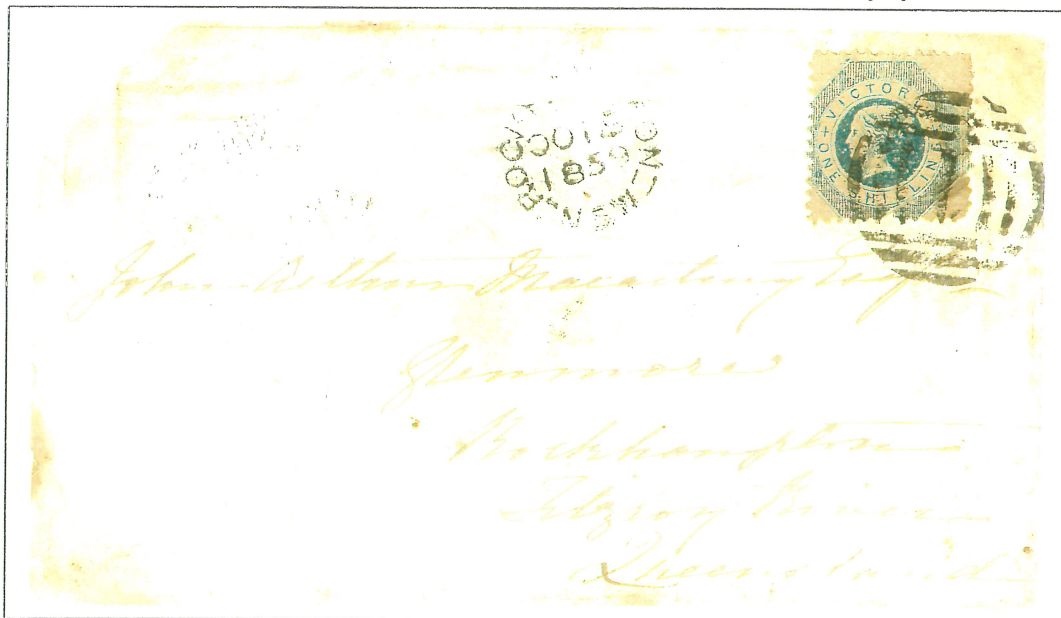 VICTORIA
ONE SHILLING
1859
N.S.W
John Arthur Macartney Esqre
Glenmore
Rockhampton
Fitzroy River
Queensland